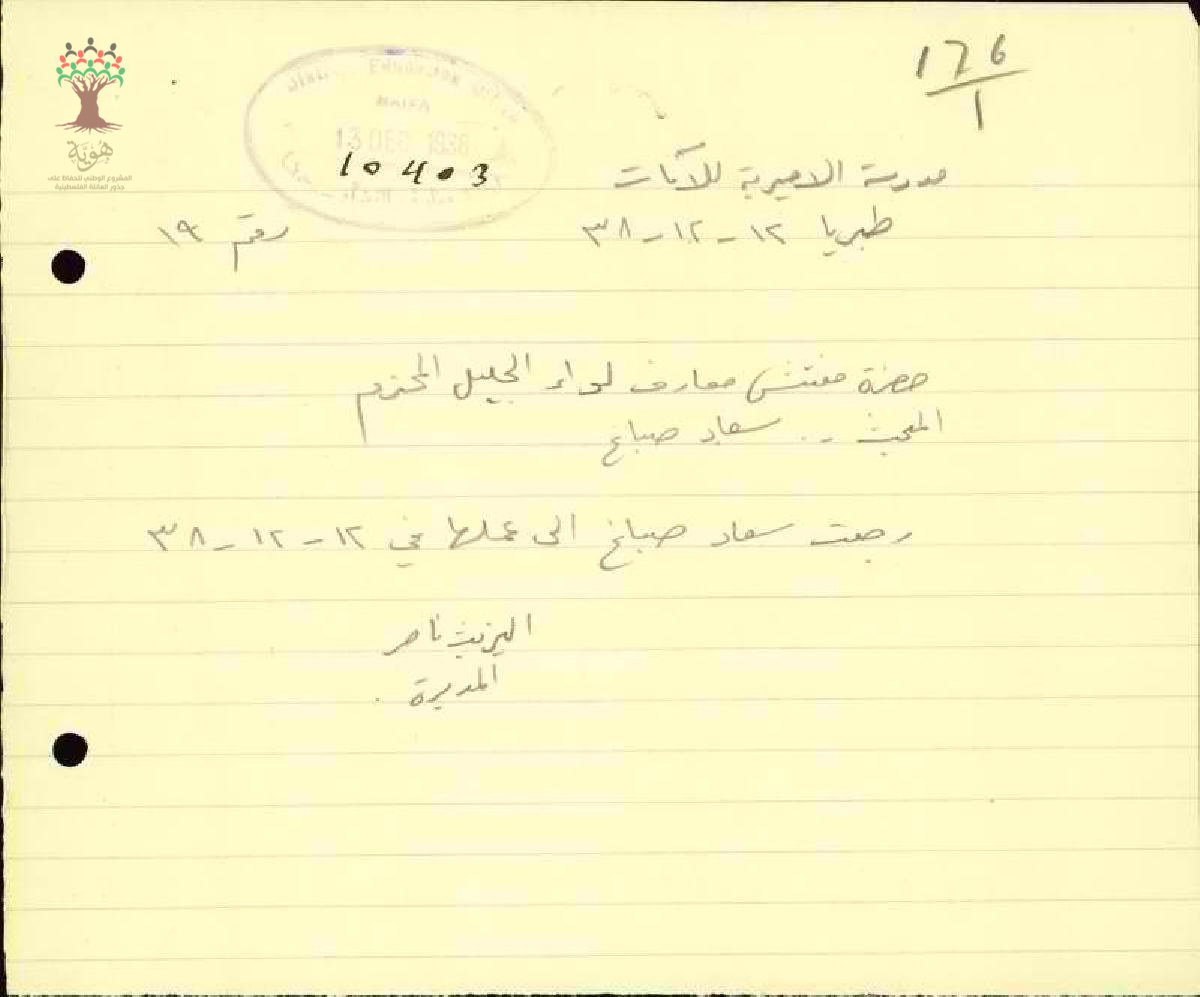 176
1
هوية
المشروع الوطني للحفاظ على
جذور العائلة الفلسطينية
EDUCATION
HAIFA
13 DEC 1938
10403
مدرسة الاميرية للآنات
طبريا ١٢-١٢-٣٨
رقم ١٩
حضرة مفتش معارف لواء الجليل المحترم
المبحث .. سعاد صباغ
رجعت سعاد صباغ الى عملها في ١٢-١٢-٣٨
اليزبيث ناصر
المديرة